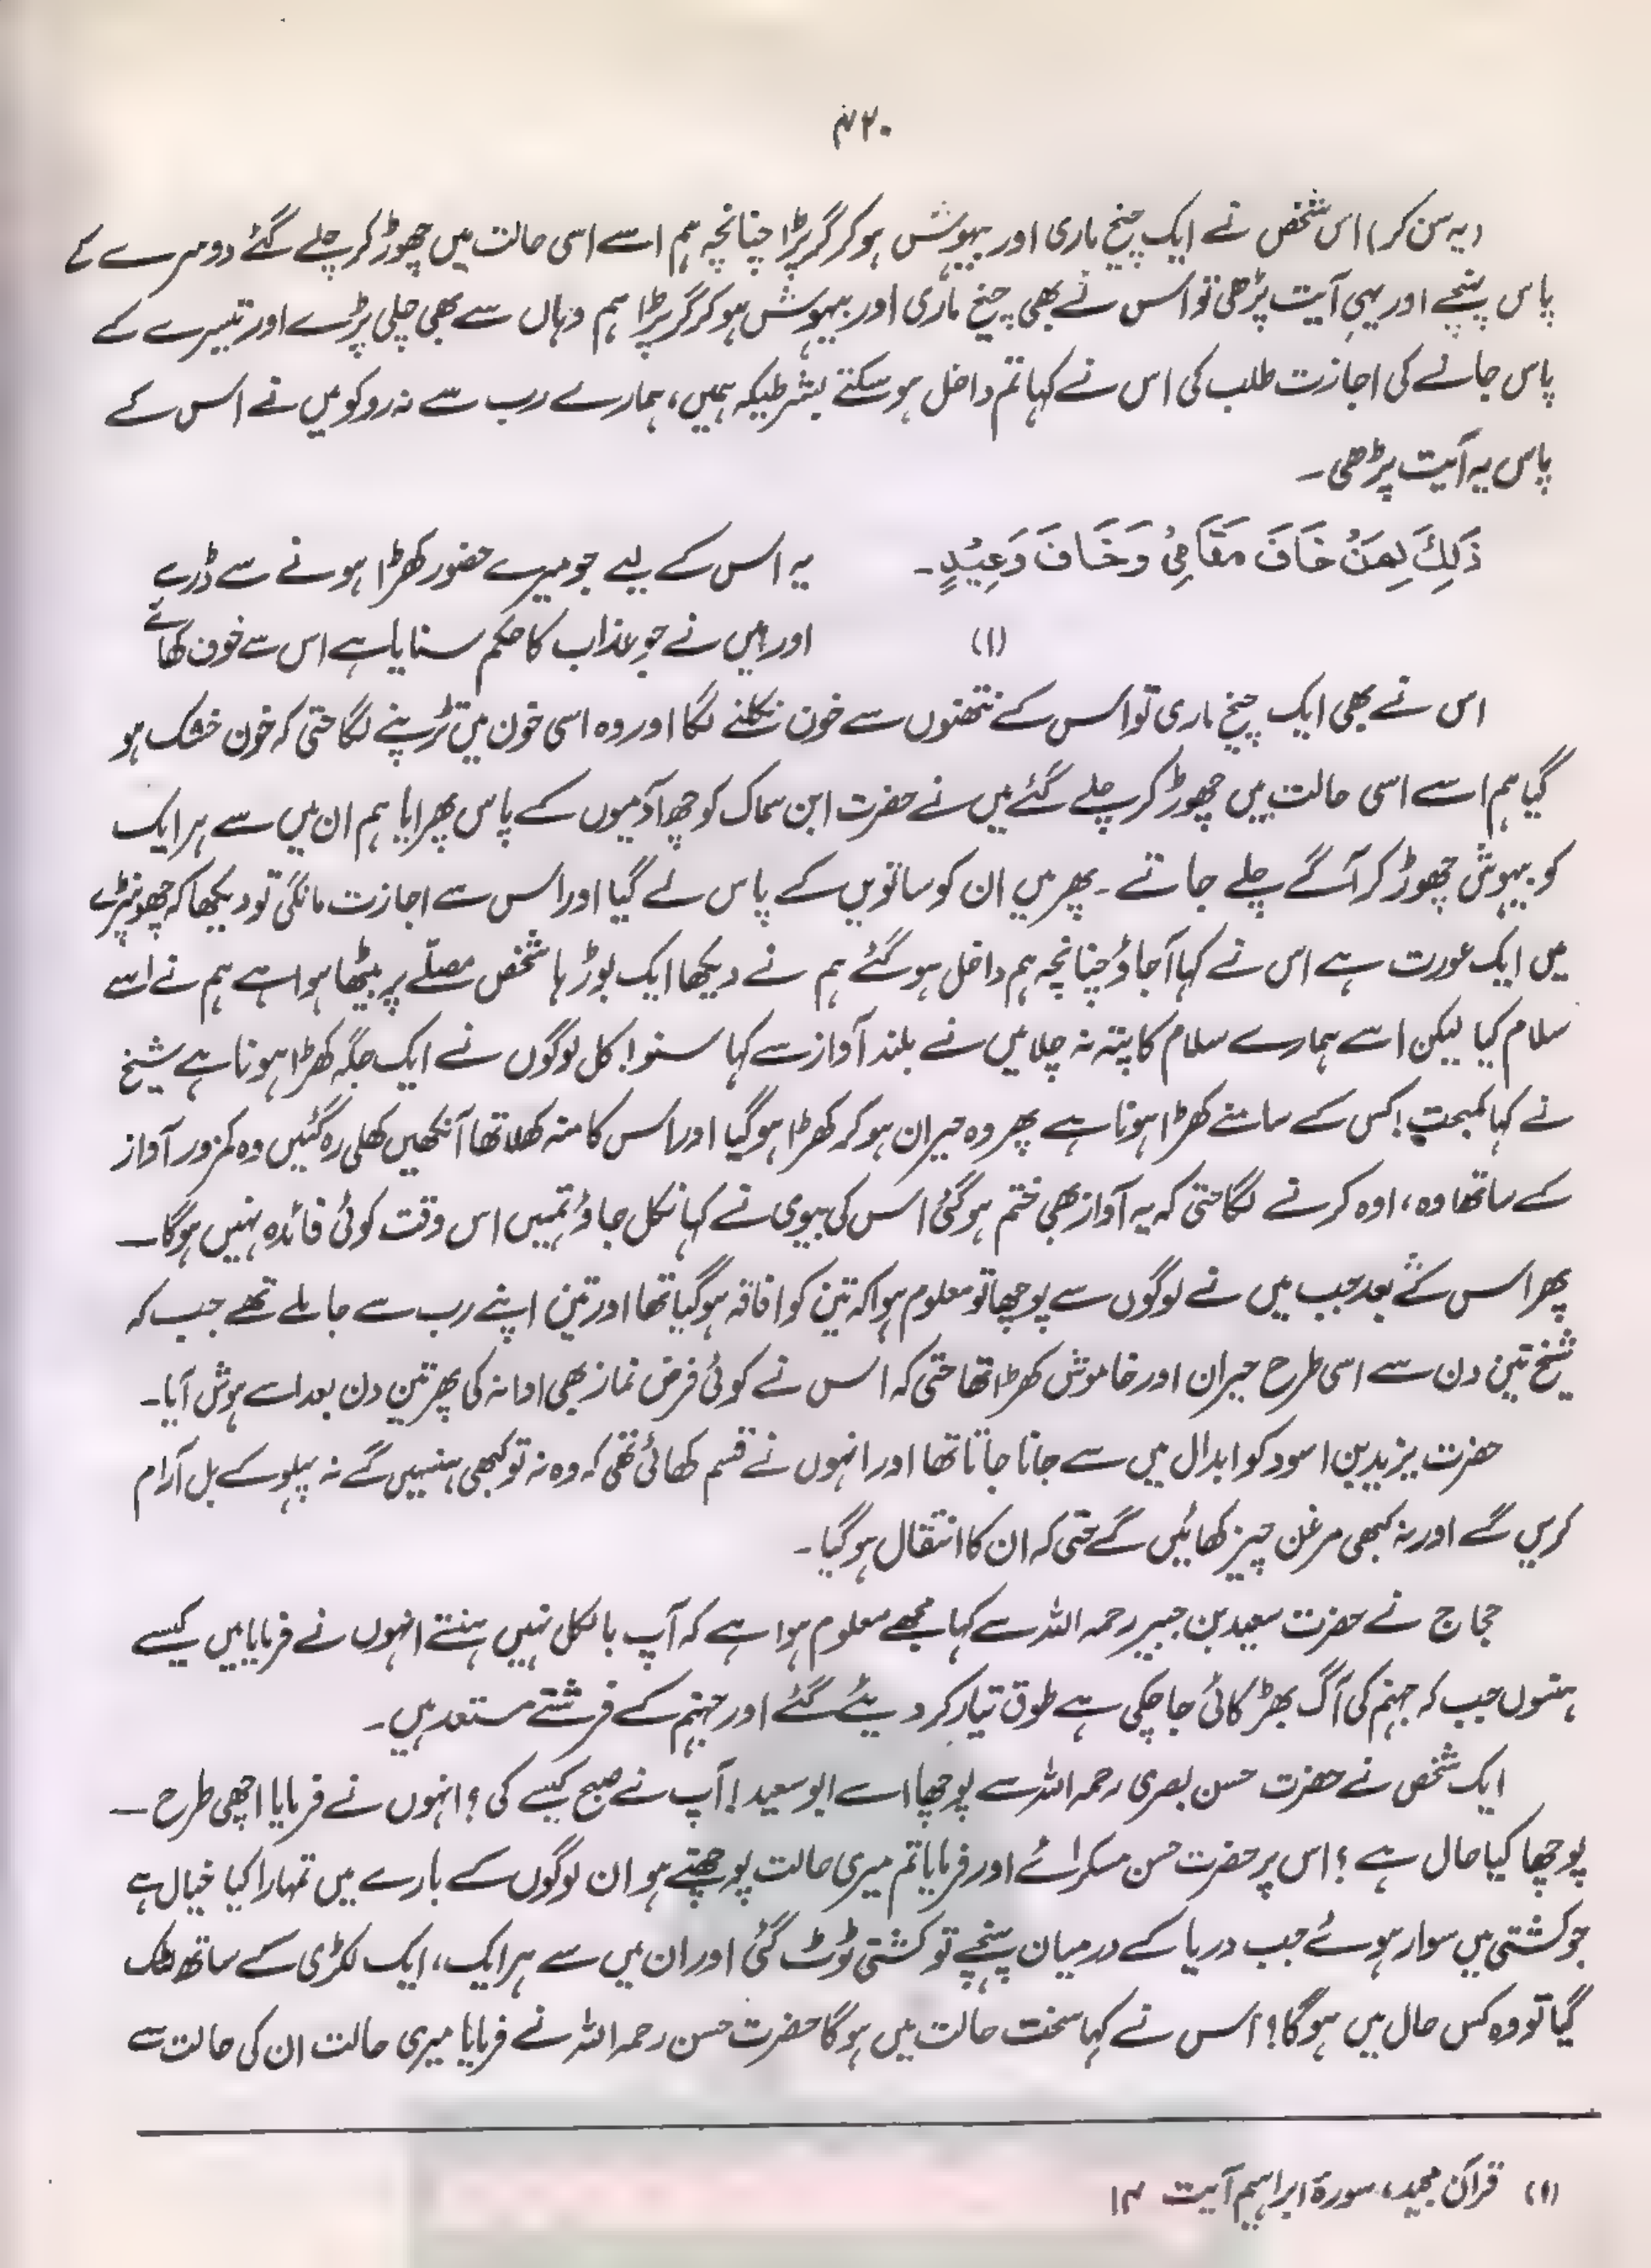 ۴۲۰
(یہ سن کر) اس شخص نے ایک چیخ ماری اور بیہوش ہو کر گر پڑا چنانچہ ہم اسے اسی حالت میں چھوڑ کر چلے گئے دوسرے کے
پاس پہنچے اور یہی آیت پڑھی تو اس نے بھی چیخ ماری اور بیہوش ہو کر گر پڑا ہم وہاں سے بھی چلی پڑے اور تیسرے کے
پاس جانے کی اجازت طلب کی اس نے کہا تم داخل ہو سکتے بشرطیکہ ہمیں، ہمارے رب سے نہ روکو میں نے اس کے
پاس یہ آیت پڑھی۔
ذَلِكَ لِمَنْ خَافَ مَقَامِيْ وَخَافَ وَعِيْدِ۔
یہ اس کے لیے جو میرے حضور کھڑا ہونے سے ڈرے
(۱)
اور میں نے جو عذاب کا حکم سنایا ہے اس سے خوف کھائے
اس نے بھی ایک چیخ ماری تو اس کے نتھنوں سے خون نکلنے لگا اور وہ اسی خون میں تڑپنے لگا حتی کہ خون خشک ہو
گیا ہم اسے اسی حالت میں چھوڑ کر چلے گئے میں نے حضرت ابن سماک کو چھ آدمیوں کے پاس پھرایا ہم ان میں سے ہر ایک
کو بیہوش چھوڑ کر آگے چلے جاتے ۔ پھر میں ان کو ساتویں کے پاس لے گیا اور اس سے اجازت مانگی تو دیکھا کہ جھونپڑے
میں ایک عورت ہے اس نے کہا آجاؤ چنانچہ ہم داخل ہو گئے ہم نے دیکھا ایک بوڑھا شخص مصلّے پر بیٹھا ہوا ہے ہم نے اسے
سلام کیا لیکن اسے ہمارے سلام کا پتہ نہ چلا میں نے بلند آواز سے کہا سنو! کل لوگوں نے ایک جگہ کھڑا ہونا ہے شیخ
نے کہا کمبخت! کس کے سامنے کھڑا ہونا ہے پھر وہ حیران ہو کر کھڑا ہو گیا اور اس کا منہ کھلا تھا آنکھیں کھلی رہ گئیں وہ کمزور آواز
کے ساتھ اوہ، اوہ کرنے لگا حتی کہ یہ آواز بھی ختم ہو گئی اس کی بیوی نے کہا نکل جاؤ تمہیں اس وقت کوئی فائدہ نہیں ہوگا ۔
پھر اس کے بعد جب میں نے لوگوں سے پوچھا تو معلوم ہوا کہ تین کو افاقہ ہو گیا تھا اور تین اپنے رب سے جا ملے تھے جب کہ
شیخ تین دن سے اسی طرح حیران اور خاموش کھڑا تھا حتی کہ اس نے کوئی فرض نماز بھی ادا نہ کی پھر تین دن بعد اسے ہوش آیا۔
حضرت یزید بن اسود کو ابدال میں سے جانا جاتا تھا اور انہوں نے قسم کھائی تھی کہ وہ نہ تو کبھی ہنسیں گے نہ پہلو کے بل آرام
کریں گے اور نہ کبھی مرغن چیز کھائیں گے حتی کہ ان کا انتقال ہو گیا ۔
حجاج نے حضرت سعید بن جبیر رحمہ اللہ سے کہا مجھے معلوم ہوا ہے کہ آپ بالکل نہیں ہنستے انہوں نے فرمایا میں کیسے
ہنسوں جب کہ جہنم کی آگ بھڑکائی جا چکی ہے طوق تیار کر دیئے گئے اور جہنم کے فرشتے مستعد ہیں ۔
ایک شخص نے حضرت حسن بصری رحمہ اللہ سے پوچھا اے ابو سعید! آپ نے صبح کیسے کی؟ انہوں نے فرمایا اچھی طرح ۔
پوچھا کیا حال ہے؟ اس پر حضرت حسن مسکرائے اور فرمایا تم میری حالت پوچھتے ہو ان لوگوں کے بارے میں تمہارا کیا خیال ہے
جو کشتی میں سوار ہوئے جب دریا کے درمیان پہنچے تو کشتی ٹوٹ گئی اور ان میں سے ہر ایک، ایک لکڑی کے ساتھ لٹک
گیا تو وہ کس حال میں ہو گا؟ اس نے کہا سخت حالت میں ہو گا حضرت حسن رحمہ اللہ نے فرمایا میری حالت ان کی حالت سے
(۱) قرآن مجید، سورۂ ابراہیم آیت ۱۴